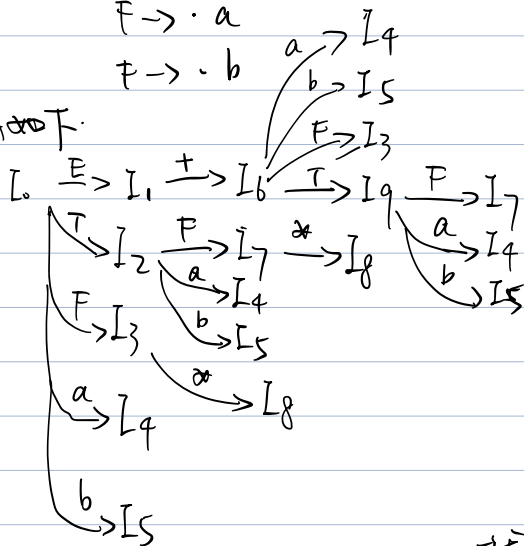 F → · a
F → · b
下:
I₀ E→ I₁ +→ I₆ T→ I₉ F→ I₇
a→ I₄
b→ I₅
F→ I₃
a→ I₄
b→ I₅
T→ I₂ F→ I₇ *→ I₈
a→ I₄
b→ I₅
F→ I₃ *→ I₈
a→ I₄
b→ I₅